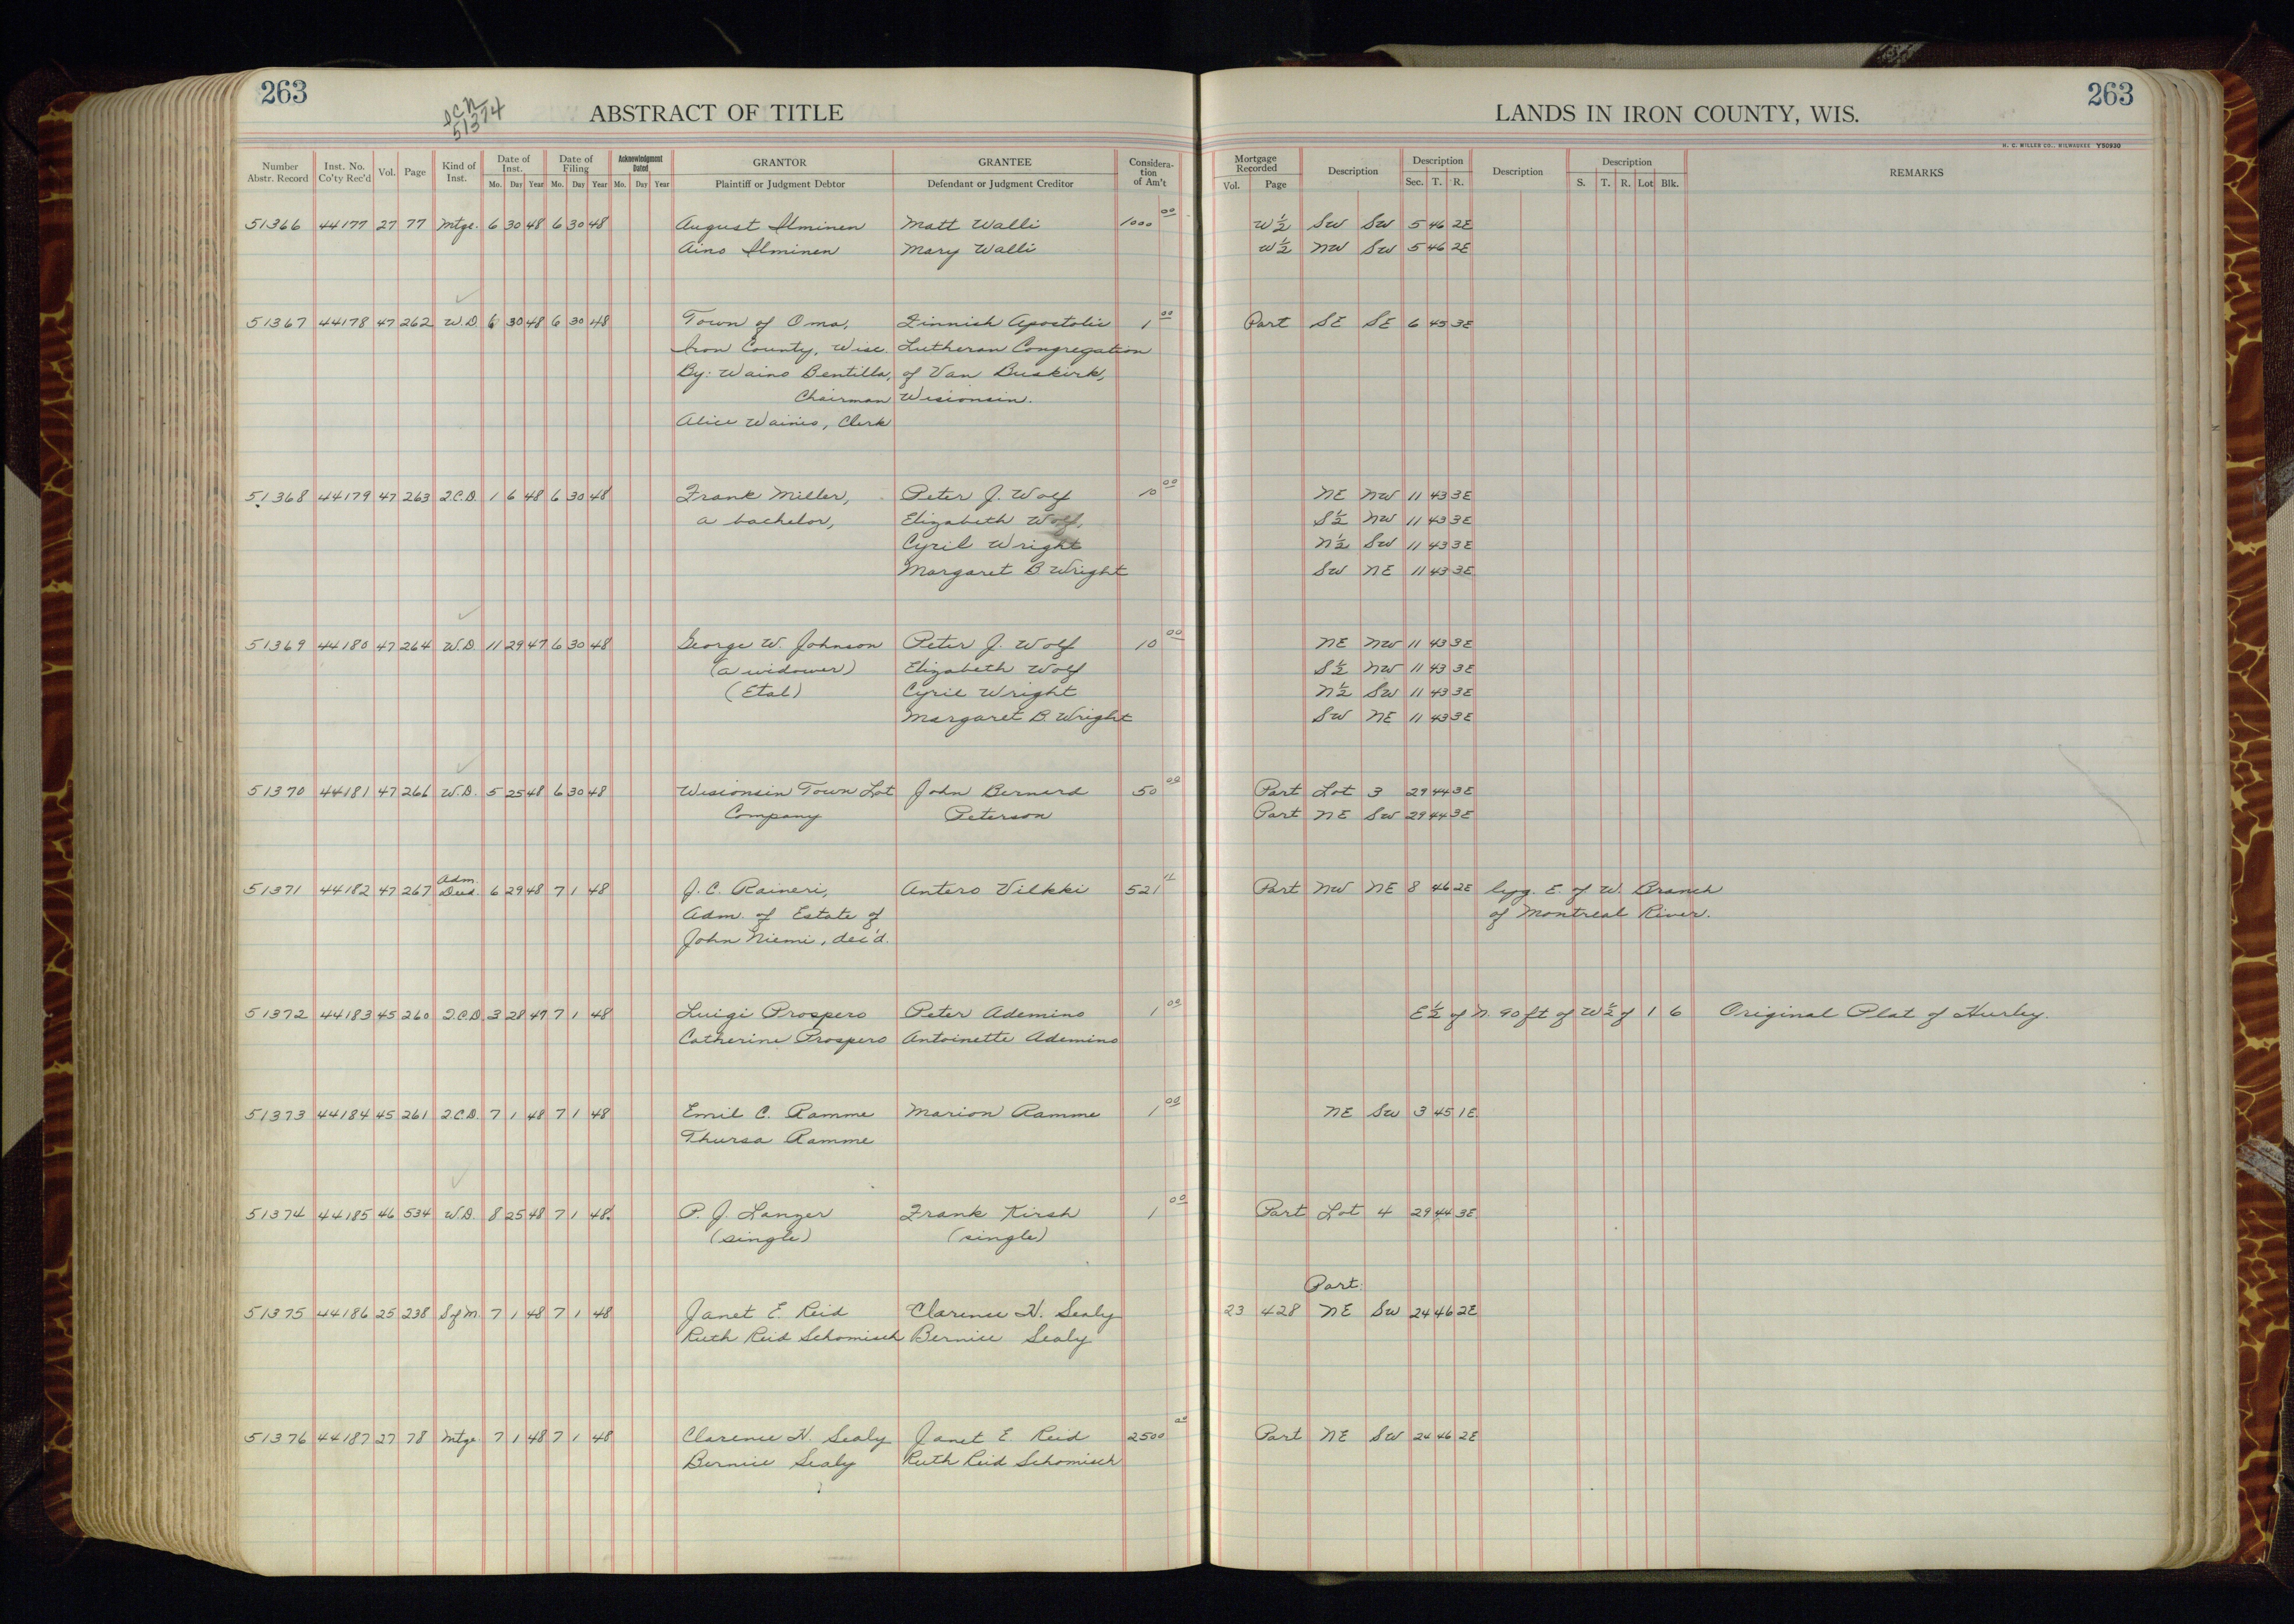 263
ABSTRACT OF TITLE
LANDS IN IRON COUNTY, WIS.
263
51374
H. C. MILLER CO., MILWAUKEE Y50930
Number Abstr. Record Inst. No. Co'ty Rec'd Vol. Page Kind of Inst. Date of Inst. Mo. Day Year Date of Filing Mo. Day Year Acknowledgment Dated Mo. Day Year GRANTOR Plaintiff or Judgment Debtor GRANTEE Defendant or Judgment Creditor Considera-tion of Am't Mortgage Recorded Vol. Page Description Description Sec. T. R. Description Description S. T. R. Lot Blk. REMARKS
51366 44177 27 77 Mtge. 6 30 48 6 30 48 August Ilminen Matt Walli 1000 00 W½ SW SW 5 46 2E
Aino Ilminen Mary Walli W½ NW SW 5 46 2E
51367 44178 47 262 W.D. 6 30 48 6 30 48 Town of Oma, Finnish Apostolic 1 00 Part SE SE 6 45 3E
Iron County, Wisc. Lutheran Congregation
By: Waino Bentilla, of Van Buskirk,
Chairman Wisconsin.
Alice Wainio, Clerk
51368 44179 47 263 Q.C.D. 1 6 48 6 30 48 Frank Miller, Peter J. Wolf 10 00 NE NW 11 43 3E
a bachelor, Elizabeth Wolf, S½ NW 11 43 3E
Cyril Wright N½ SW 11 43 3E
Margaret B Wright SW NE 11 43 3E
51369 44180 47 264 W.D. 11 29 47 6 30 48 George W. Johnson Peter J. Wolf 10 00 NE NW 11 43 3E
(a widower) Elizabeth Wolf S½ NW 11 43 3E
(Etal) Cyril Wright N½ SW 11 43 3E
Margaret B. Wright SW NE 11 43 3E
51370 44181 47 266 W.D. 5 25 48 6 30 48 Wisconsin Town Lot John Bernard 50 00 Part Lot 3 29 44 3E
Company Peterson Part NE SW 29 44 3E
51371 44182 47 267 Adm. Deed 6 29 48 7 1 48 J. C. Raineri, Antero Vilkki 521 Part NW NE 8 46 2E lyg. E. of W. Branch
Adm. of Estate of of Montreal River.
John Niemi, dec'd.
51372 44183 45 260 Q.C.D. 3 28 47 7 1 48 Luigi Prospero Peter Ademino 1 00 E½ of N. 90 ft of W½ of 1 6 Original Plat of Hurley.
Catherine Prospero Antoinette Ademino
51373 44184 45 261 Q.C.D. 7 1 48 7 1 48 Emil C. Ramme Marion Ramme 1 00 NE SW 3 45 1E
Thursa Ramme
51374 44185 46 534 W.D. 8 25 48 7 1 48 P. J. Lanzer Frank Kirsh 1 00 Part Lot 4 29 44 3E
(single) (single)
Part
51375 44186 25 238 S of M. 7 1 48 7 1 48 Janet E. Reid Clarence H. Sealy 23 428 NE SW 24 46 2E
Ruth Reid Schomisch Bernice Sealy
51376 44187 27 78 Mtge 7 1 48 7 1 48 Clarence H. Sealy Janet E. Reid 2500 00 Part NE SW 24 46 2E
Bernice Sealy Ruth Reid Schomisch